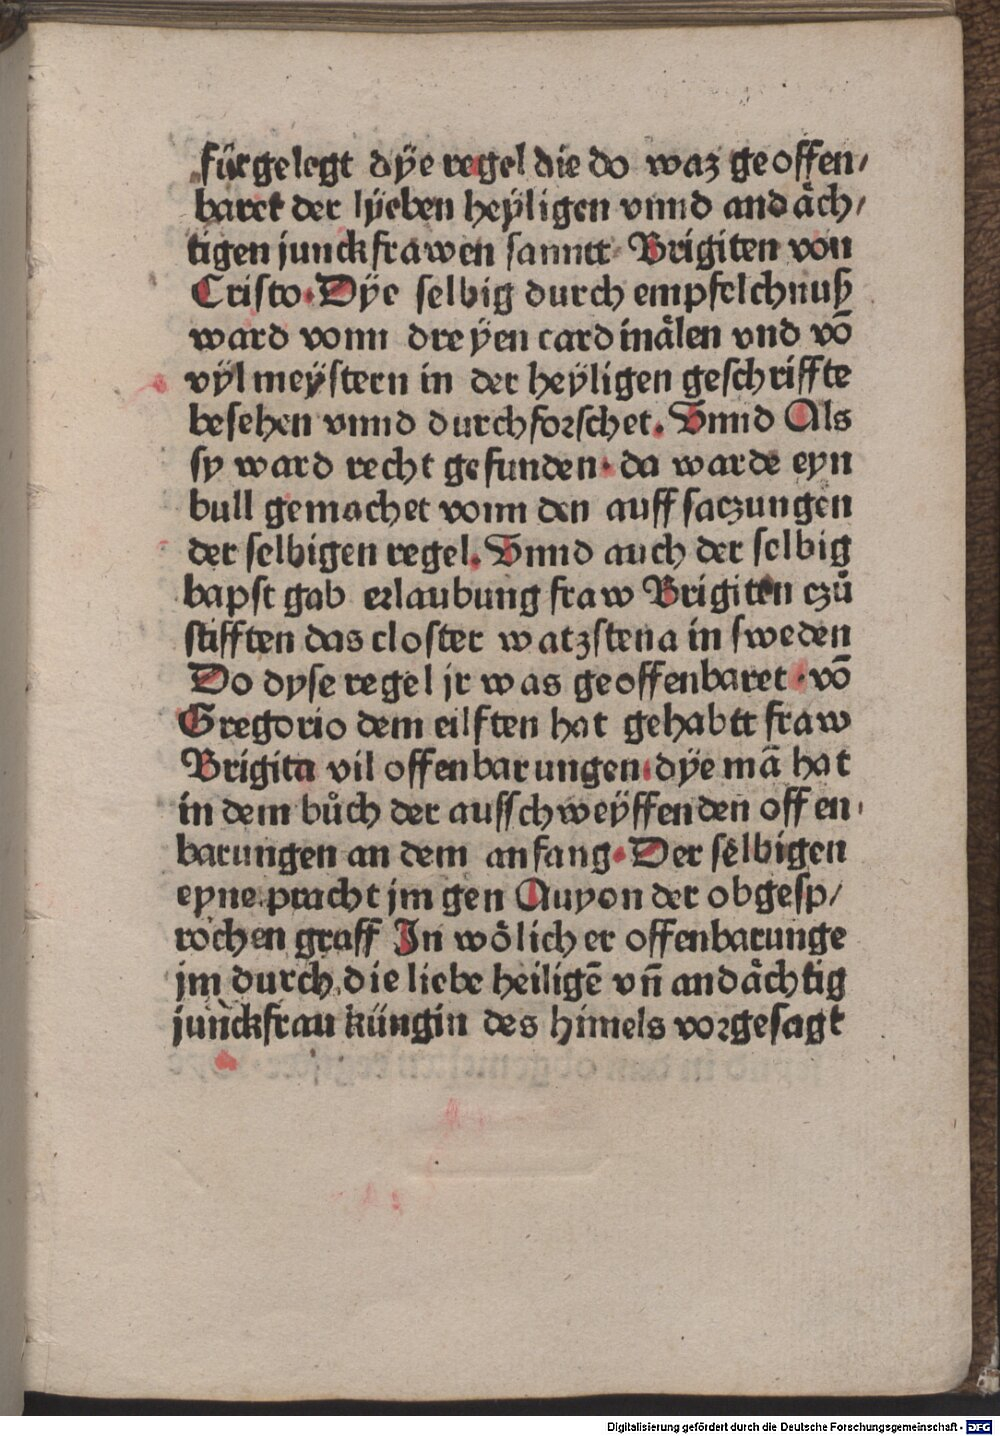 fürgelegt dÿe regel die do waʒ geoffen⸗
baret der lÿeben heÿligen vnnd andåch⸗
tigen junckfrawen sanntt Brigiten von
Cristo. Dÿe selbig durch empfelchnuß
ward vonn dreÿen cardinålen vnd vō
vÿl meÿstern in der heÿligen geschriffte
besehen vnnd durchforschet. Vnnd Als
sy ward recht gefunden· da warde eyn
bull gemachet vonn den auffsaczungen
der selbigen regel. Vnnd auch der selbig
bapst gab erlaubung fraw Brigiten czů
stifften das closter watzstena in sweden
Do dyse regel jr was geoffenbaret · vō
Gregorio dem eilften hat gehabtt fraw
Brigita vil offenbarungen· dÿe mā hat
in dem bůch der aussschweÿffenden offen⸗
barungen an dem anfang· Der selbigen
eyne pracht jm gen Auyon der obgesp⸗
rochen graff In wölicher offenbarunge
jm durch die liebe heiligē vn̄ andåchtig
junckfrau küngin des himels vorgesagt
Digitalisierung gefördert durch die Deutsche Forschungsgemeinschaft - DFG